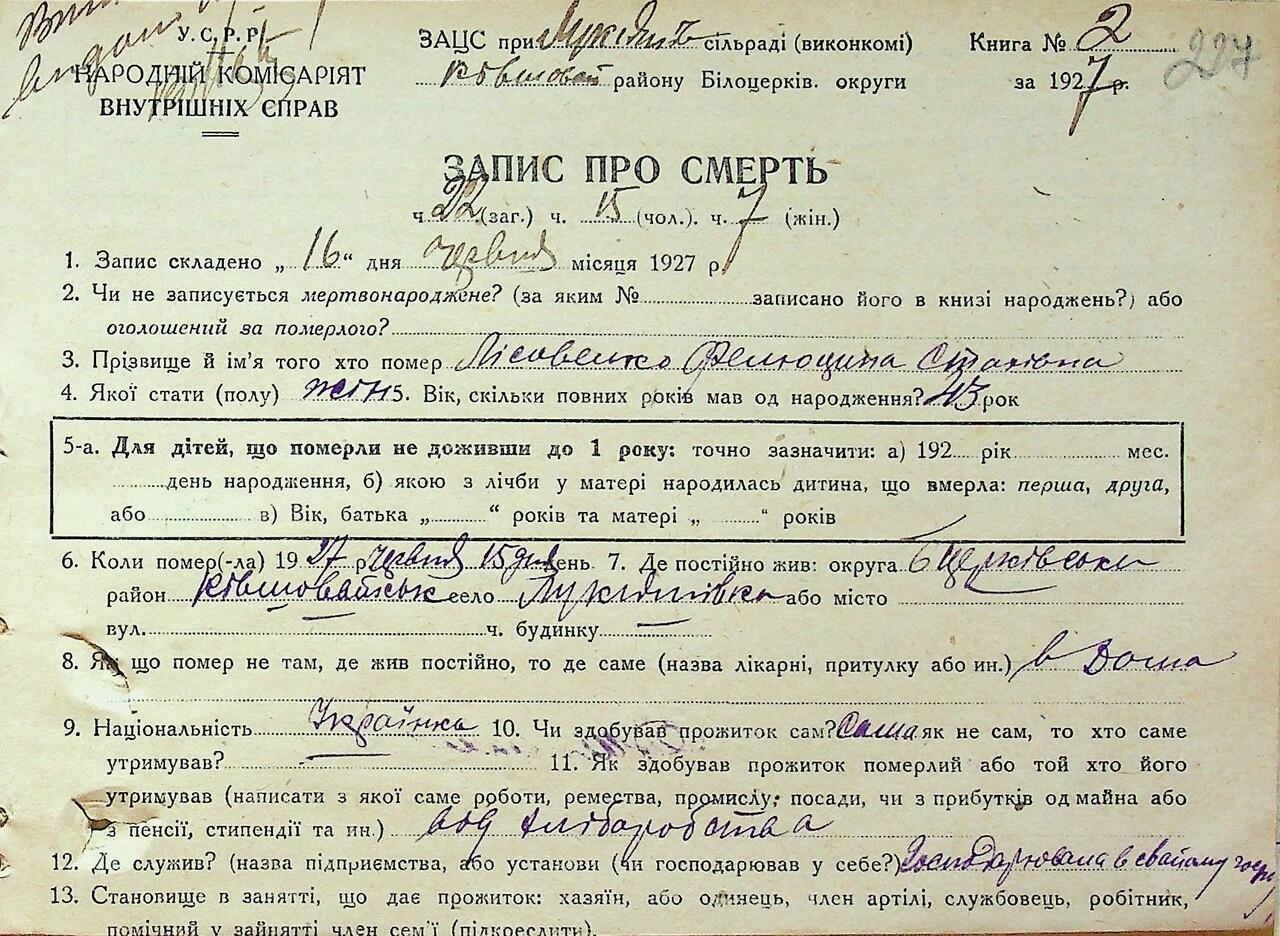 У.С.Р.Р.
НАРОДНІЙ КОМІСАРІЯТ
ВНУТРІШНІХ СПРАВ
ЗАЦС при сільраді (виконкомі)
району Білоцерків. округи
Книга № 2
за 1927 р.
227
ЗАПИС ПРО СМЕРТЬ
ч. 22 (заг.) ч. 15 (чол.). ч. 7 (жін.)
1. Запис складено „ 16 “ дня червня місяця 1927 р.
2. Чи не записується мертвонароджене? (за яким № записано його в книзі народжень?) або
оголошений за померлого?
3. Прізвище й ім'я того хто помер Лісовенко
4. Якої стати (полу) жін 5. Вік, скільки повних років мав од народження? 43 рок
5-а. Для дітей, що померли не доживши до 1 року: точно зазначити: а) 192 рік мес.
день народження, б) якою з лічби у матері народилась дитина, що вмерла: перша, друга,
або в) Вік, батька „ “ років та матері „ “ років
6. Коли помер(-ла) 1927 р червня 15 дня день 7. Де постійно жив: округа БЦерківська
район село Лукіянівка або місто
вул. ч. будинку
8. Як що помер не там, де жив постійно, то де саме (назва лікарні, притулку або ин.) в Дома
9. Національність Українка 10. Чи здобував прожиток сам? Сама як не сам, то хто саме
утримував? 11. Як здобував прожиток померлий або той хто його
утримував (написати з якої саме роботи, ремества, промислу, посади, чи з прибутків од майна або
з пенсії, стипендії та ин.) од хліборобства
12. Де служив? (назва підприємства, або установи (чи господарював у себе?) Господарювала в свайому
13. Становище в занятті, що дає прожиток: хазяїн, або одинець, член артілі, службовець, робітник,
помічний у зайнятті член сем'ї (підкреслити).